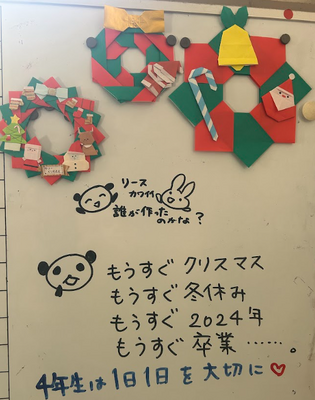 リース
カワイイ
誰が作った
のかな?
もうすぐ クリスマス
もうすぐ 冬休み
もうすぐ 2024年
もうすぐ 卒業……。
4年生は1日1日を大切に♡